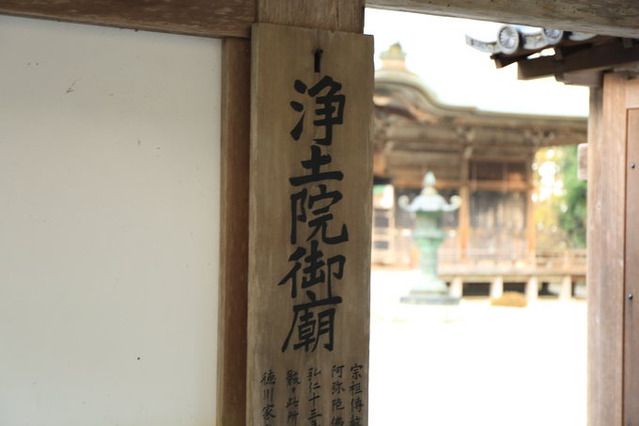 浄土院御廟
宗祖傳教
阿弥陀佛
弘仁十三
骸を此所
徳川家